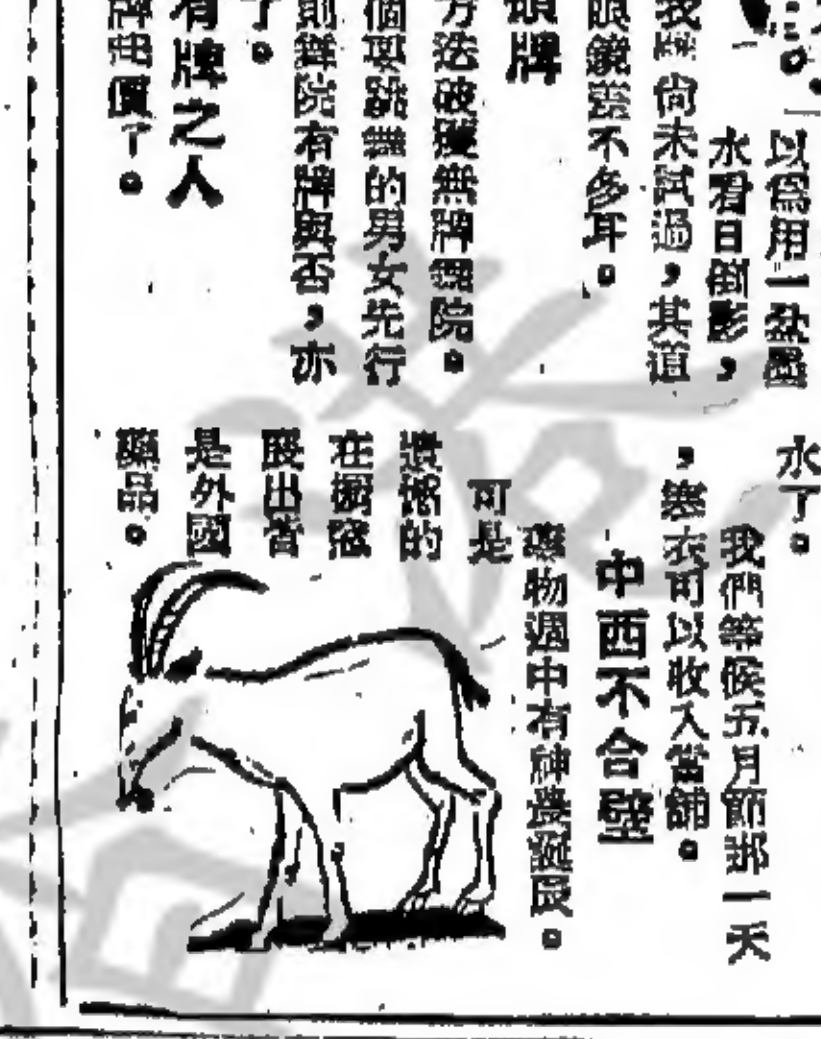 以為用一盆墨
水看日倒影，
我牌尚未試過，其道
眼鏡蛋不多耳。
頭牌
方法破獲無牌舞院。
個要跳舞的男女先行
則舞院有牌與否，亦
了。
有牌之人
牌起價了。
水了。
我們等候五月節那一天
，寒衣可以收入當舖。
中西不合壁
藥物週中有神農誕辰。
可是
遺憾的
在櫥窗
陳出皆
是外國
藥品。